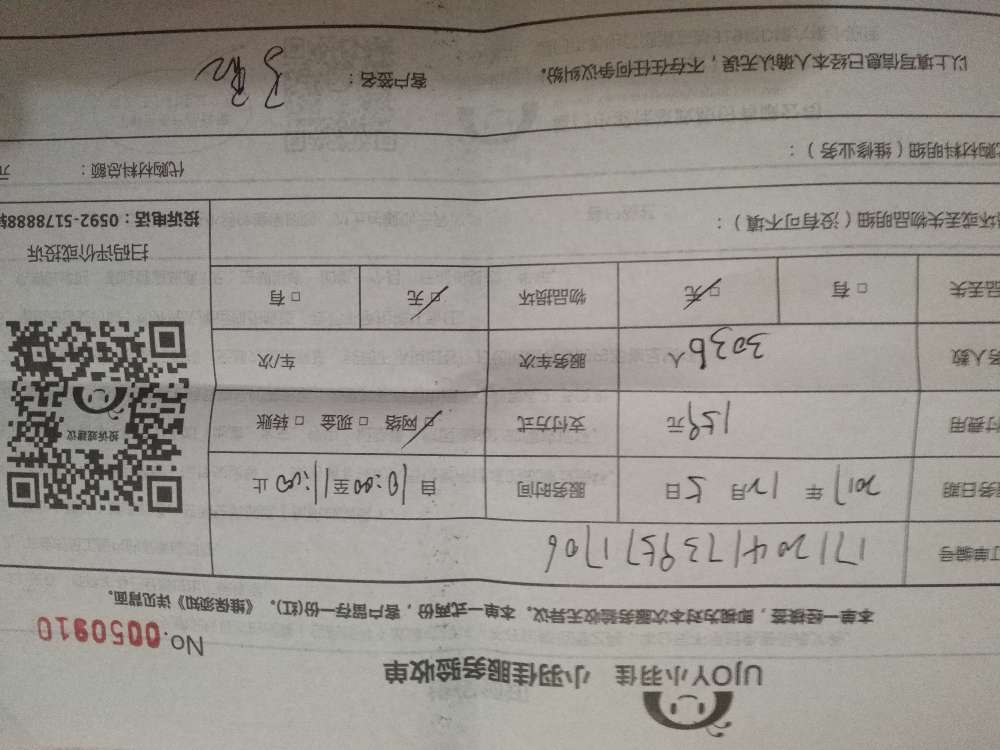 UJOY小羽佳 小羽佳服务验收单
No.0050910
本单一经核签，即视为对本次服务验收无异议。本单一式两份，客户留存一份(红)。《维保须知》详见背面。
订单编号 1712041739571706
服务日期 2017 年 12月 5 日 服务时间 自 10:00 至 11:00 止
付费用 159元 支付方式 □ 网络 □ 现金 □ 转账
务人数 3036 人 服务车次 车/次
品丢失 □ 有 □ 无 物品损坏 □ 无 □ 有
投诉或建议
扫码评价或投诉
投诉电话：0592-5178888转
坏或丢失物品明细（没有可不填）：
代购材料明细（维修业务）： 代购材料总额： 元
以上填写信息已经本人确认无误，不存在任何争议纠纷。 客户签名：